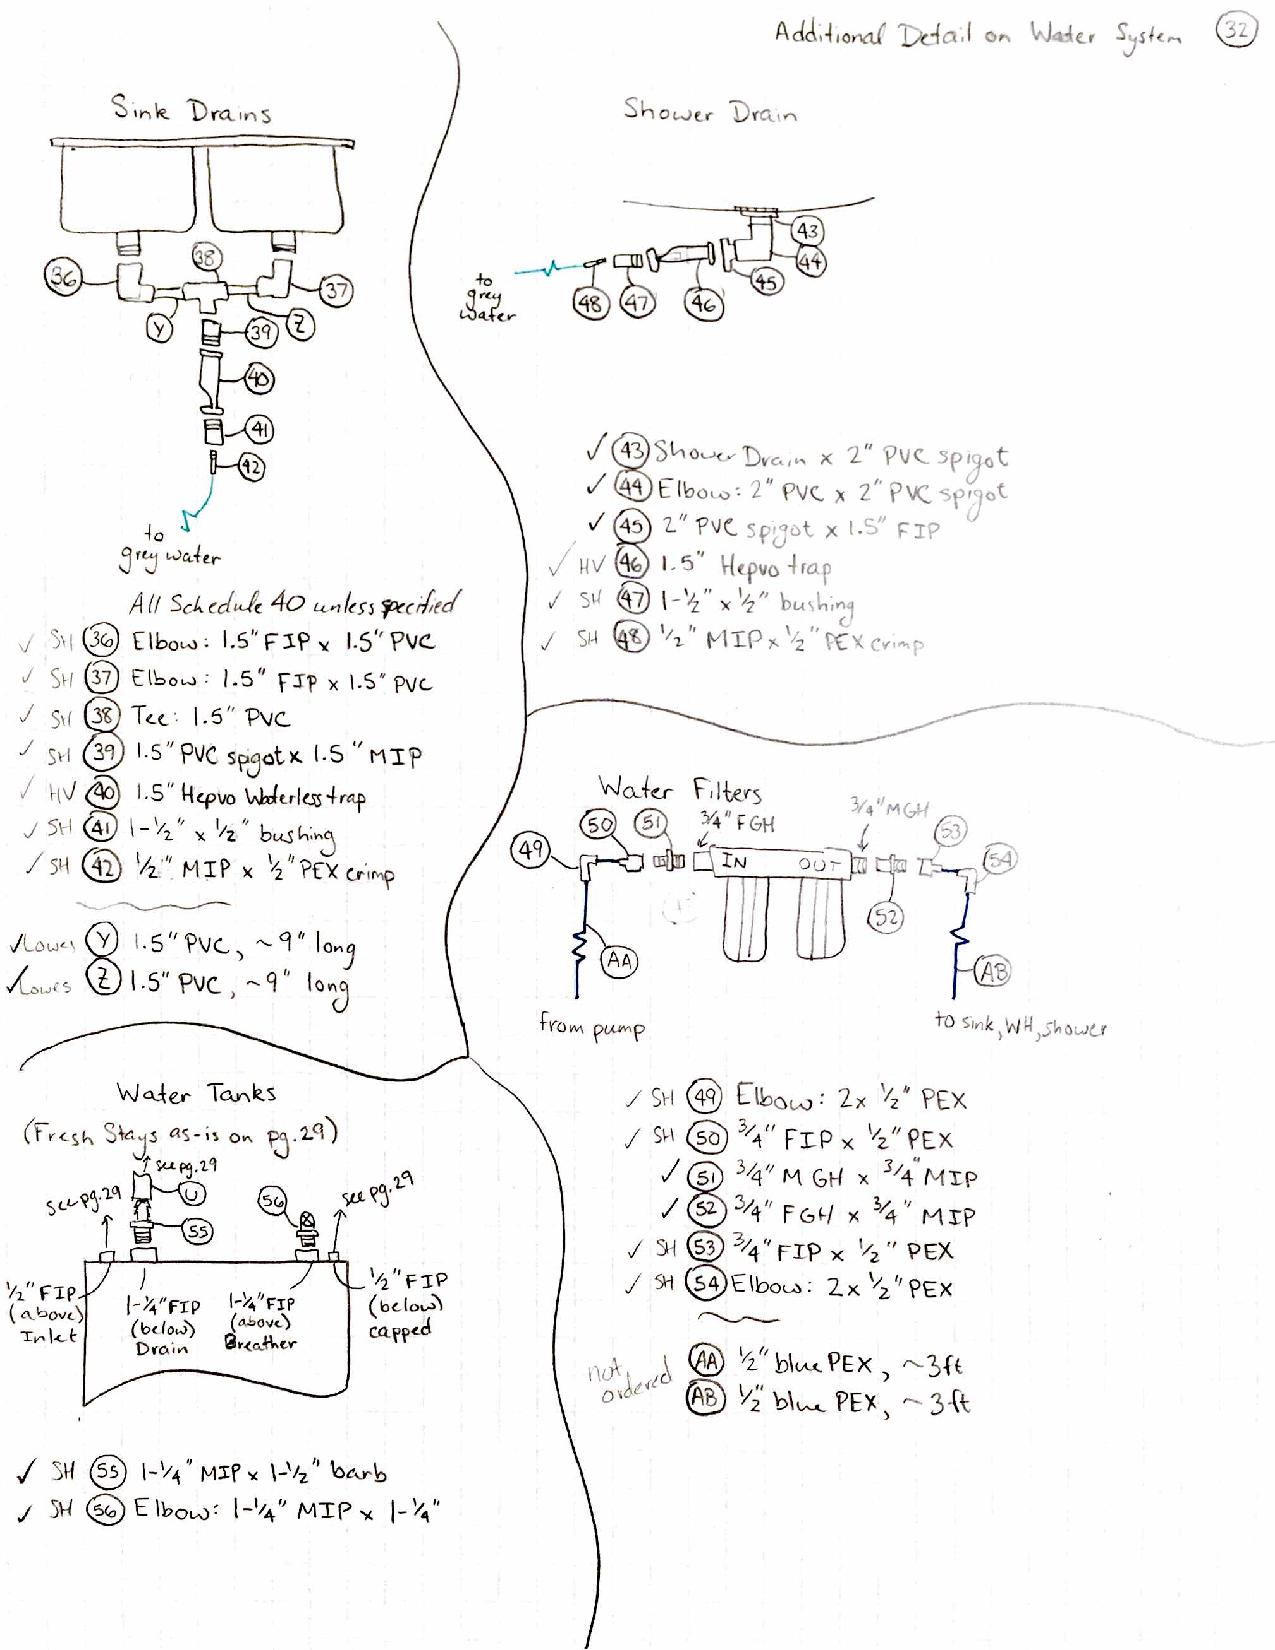 Additional Detail on Water System 32
Sink Drains
36
38
37
Y
39
Z
40
41
42
to
grey water
All Schedule 40 unless specified
✓ SH 36 Elbow: 1.5" FIP x 1.5" PVC
✓ SH 37 Elbow: 1.5" FIP x 1.5" PVC
✓ SH 38 Tee: 1.5" PVC
✓ SH 39 1.5" PVC spigot x 1.5" MIP
✓ HV 40 1.5" Hepvo Waterless trap
✓ SH 41 1-1/2" x 1/2" bushing
✓ SH 42 1/2" MIP x 1/2" PEX crimp
✓Lowes Y 1.5" PVC, ~9" long
✓Lowes Z 1.5" PVC, ~9" long
Shower Drain
43
44
45
46
47
48
to
grey
water
✓ 43 Shower Drain x 2" PVC spigot
✓ 44 Elbow: 2" PVC x 2" PVC spigot
✓ 45 2" PVC spigot x 1.5" FIP
✓ HV 46 1.5" Hepvo trap
✓ SH 47 1-1/2" x 1/2" bushing
✓ SH 48 1/2" MIP x 1/2" PEX crimp
Water Filters
49
50
51
3/4" FGH
3/4" MGH
53
54
IN OUT
52
AA
AB
from pump
to sink, WH, shower
✓ SH 49 Elbow: 2x 1/2" PEX
✓ SH 50 3/4" FIP x 1/2" PEX
✓ 51 3/4" MGH x 3/4" MIP
✓ 52 3/4" FGH x 3/4" MIP
✓ SH 53 3/4" FIP x 1/2" PEX
✓ SH 54 Elbow: 2x 1/2" PEX
not
ordered
AA 1/2" blue PEX, ~3ft
AB 1/2" blue PEX, ~3ft
Water Tanks
(Fresh Stays as-is on pg.29)
see pg.29
see pg.29
U
55
56
see pg.29
1/2" FIP
(above)
Inlet
1-1/4" FIP
(below)
Drain
1-1/4" FIP
(above)
Breather
1/2" FIP
(below)
capped
✓ SH 55 1-1/4" MIP x 1-1/2" barb
✓ SH 56 Elbow: 1-1/4" MIP x 1-1/4"